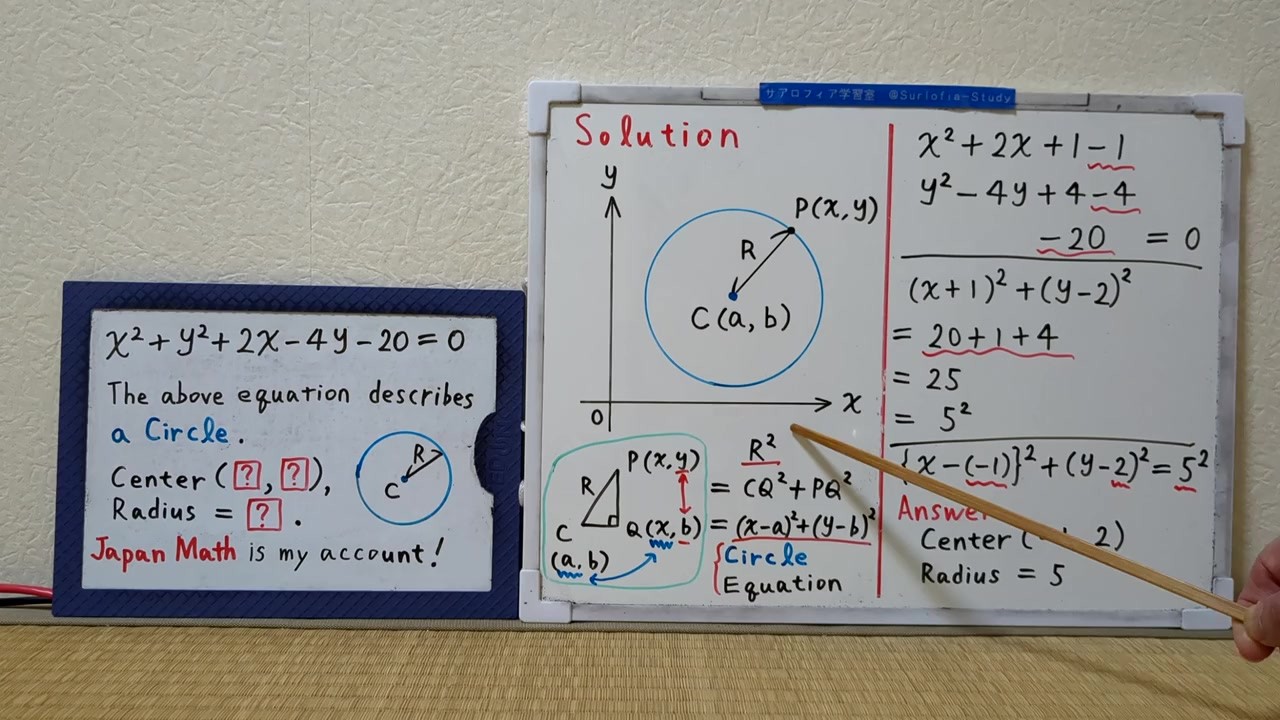 x² + y² + 2x − 4y − 20 = 0
The above equation describes
a Circle.
R
C
Center ( ? , ? ),
Radius = ? .
Japan Math is my account!
サアロフィア学習室 @Surlofia-Study
Solution
y
P(x, y)
R
C (a, b)
0
x
P(x, y)
R
C
Q(x, b)
(a, b)
R²
= CQ² + PQ²
= (x−a)² + (y−b)²
Circle
Equation
x² + 2x + 1 − 1
y² − 4y + 4 − 4
− 20 = 0
(x+1)² + (y−2)²
= 20 + 1 + 4
= 25
= 5²
{x − (−1)}² + (y−2)² = 5²
Answer
Center ( 2)
Radius = 5